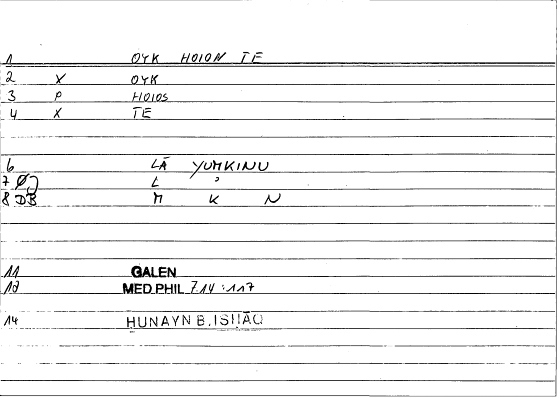 1 OYK HOION TE
2 X OYK
3 P HOIOS
4 X TE
6 LĀ YUMKINU
7 Ø) L ʾ
8 DB M K N
11 GALEN
13 MED.PHIL 7.14 :117
14 HUNAYN B. ISHĀQ